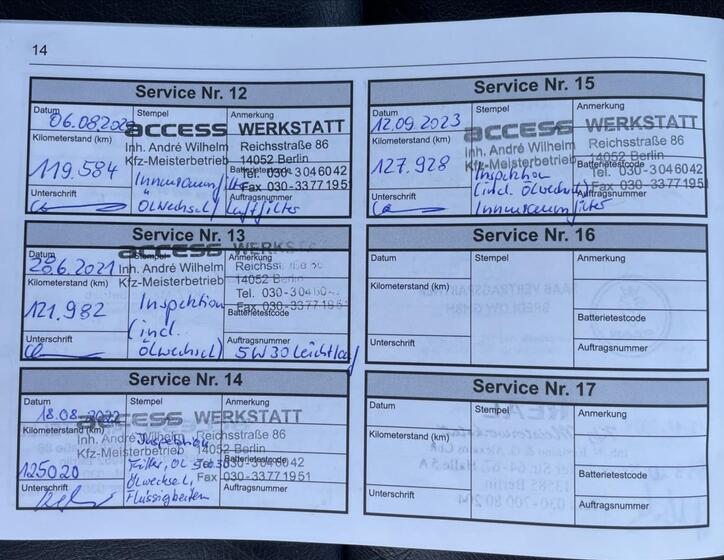 14
Service Nr. 12
Datum Stempel Anmerkung
06.08.202
access WERKSTATT
Inh. André Wilhelm Reichsstraße 86
Kfz-Meisterbetrieb 14052 Berlin
Kilometerstand (km)
119.584
Batterietestcode
Tel. 030-3046042
Fax 030-3377195
Innenraumfilter
Ölwechsel, Luftfilter
Auftragsnummer
Unterschrift
Service Nr. 13
Datum Stempel Anmerkung
28.6.2021
access WERKST
Inh. André Wilhelm Reichss
Kfz-Meisterbetrieb 14052 Berlin
Tel. 030-30460
Fax 030-3377195
Kilometerstand (km)
121.982
Inspektion
(incl.
Ölwechsel)
Batterietestcode
Auftragsnummer
5W30 Leichtlauf
Unterschrift
Service Nr. 14
Datum Stempel Anmerkung
18.08.2022
access WERKSTATT
Inh. André Wilhelm Reichsstraße 86
Kfz-Meisterbetrieb 14052 Berlin
030-3046042
Fax 030-33771951
Kilometerstand (km)
125020
Inspektion
Filter, Öl
Ölwechsel,
Flüssigkeiten
Batterietestcode
Auftragsnummer
Unterschrift
Service Nr. 15
Datum Stempel Anmerkung
12.09.2023
access WERKSTATT
Inh. André Wilhelm Reichsstraße 86
Kfz-Meisterbetrieb 14052 Berlin
Tel. 030-3046042
Fax 030-3377195
Kilometerstand (km)
127.928
Inspektion
(incl. Ölwechsel)
Innenraumfilter
Batterietestcode
Auftragsnummer
Unterschrift
Service Nr. 16
Datum Stempel Anmerkung
Kilometerstand (km)
Batterietestcode
Unterschrift Auftragsnummer
Service Nr. 17
Datum Stempel Anmerkung
Kilometerstand (km)
Batterietestcode
Unterschrift Auftragsnummer